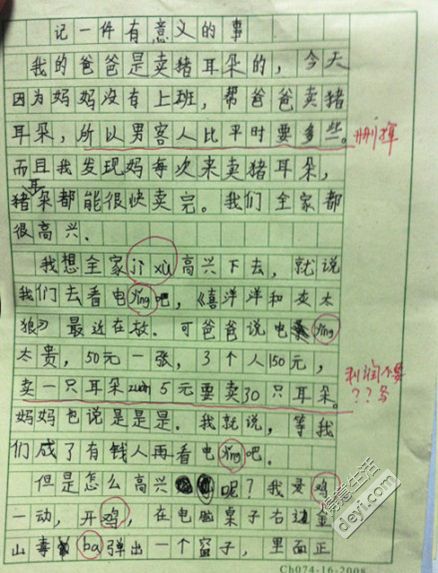 记一件有意义的事
我的爸爸是卖猪耳朵的，今天
因为妈妈没有上班，帮爸爸卖猪
耳朵，所以男客人比平时要多些。
删掉
而且我发现妈每次来卖猪耳朵，
猪耳朵都能很快卖完。我们全家都
很高兴．
我想全家jì xù高兴下去，就说
我们去看电yǐng吧，《喜洋洋和灰太
狼》最近在放．可爸爸说电yǐng
太贵，50元一张，3个人150元，
卖一只耳朵zuàn5元要卖30只耳朵。
利润不要
？？多
妈妈也说是是是．我就说，等我
们成了有钱人再看电yǐng吧．
但是怎么高兴呢？我灵鸡
一动，开鸡，在电脑桌子右边
山毒ba弹出一个窗子，里面正
得意生活
deyi.com
Ch074-16-2008